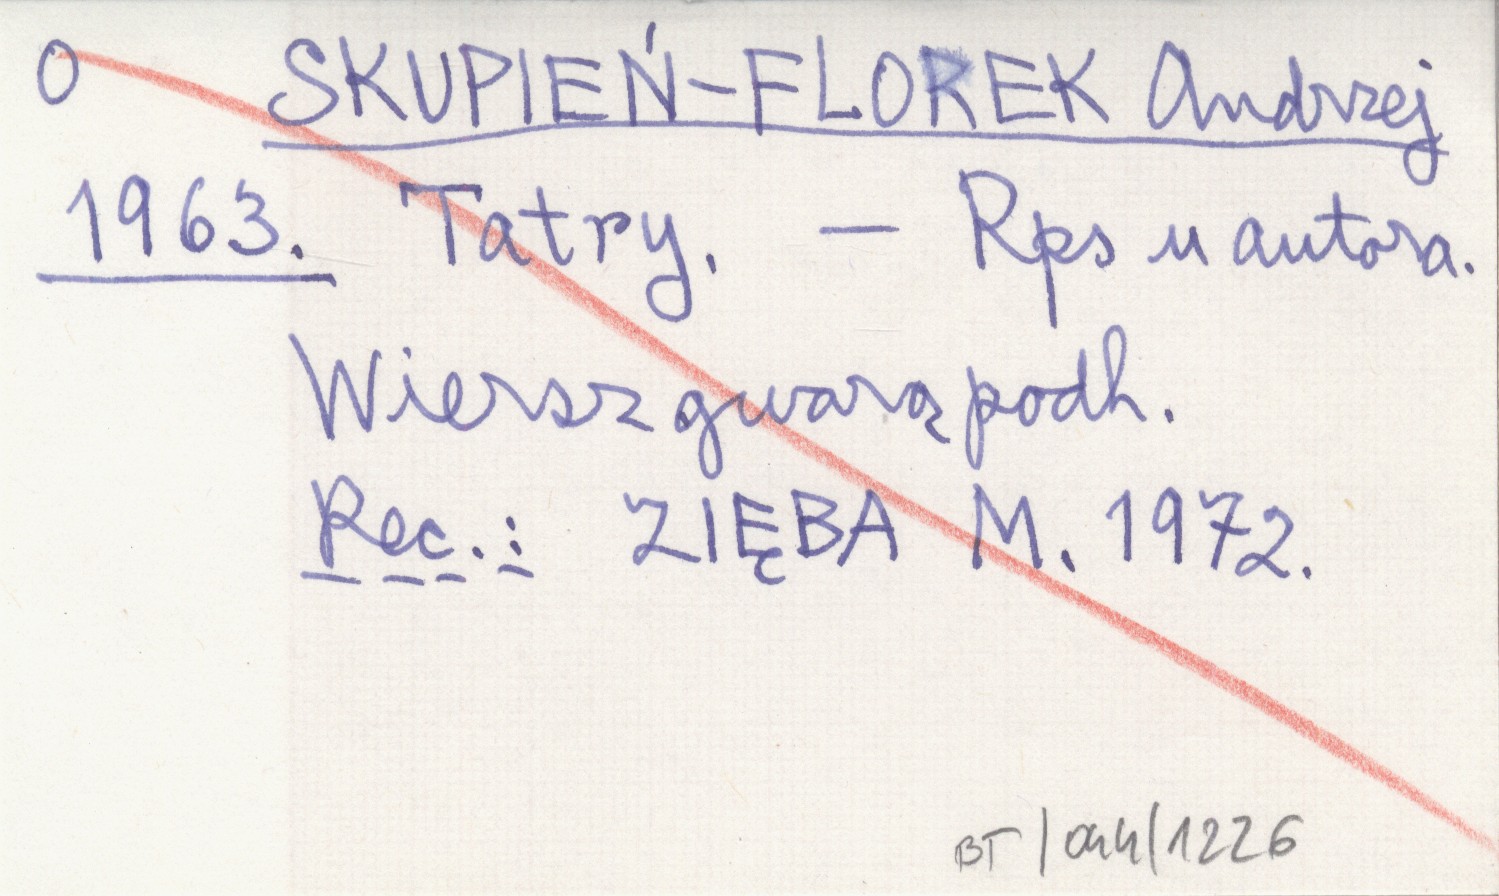 O SKUPIEŃ-FLOREK Andrzej
1963. Tatry. — Rps u autora.
Wiersz gwarą podh.
Rec.: ZIĘBA M. 1972.
BT/044/1226